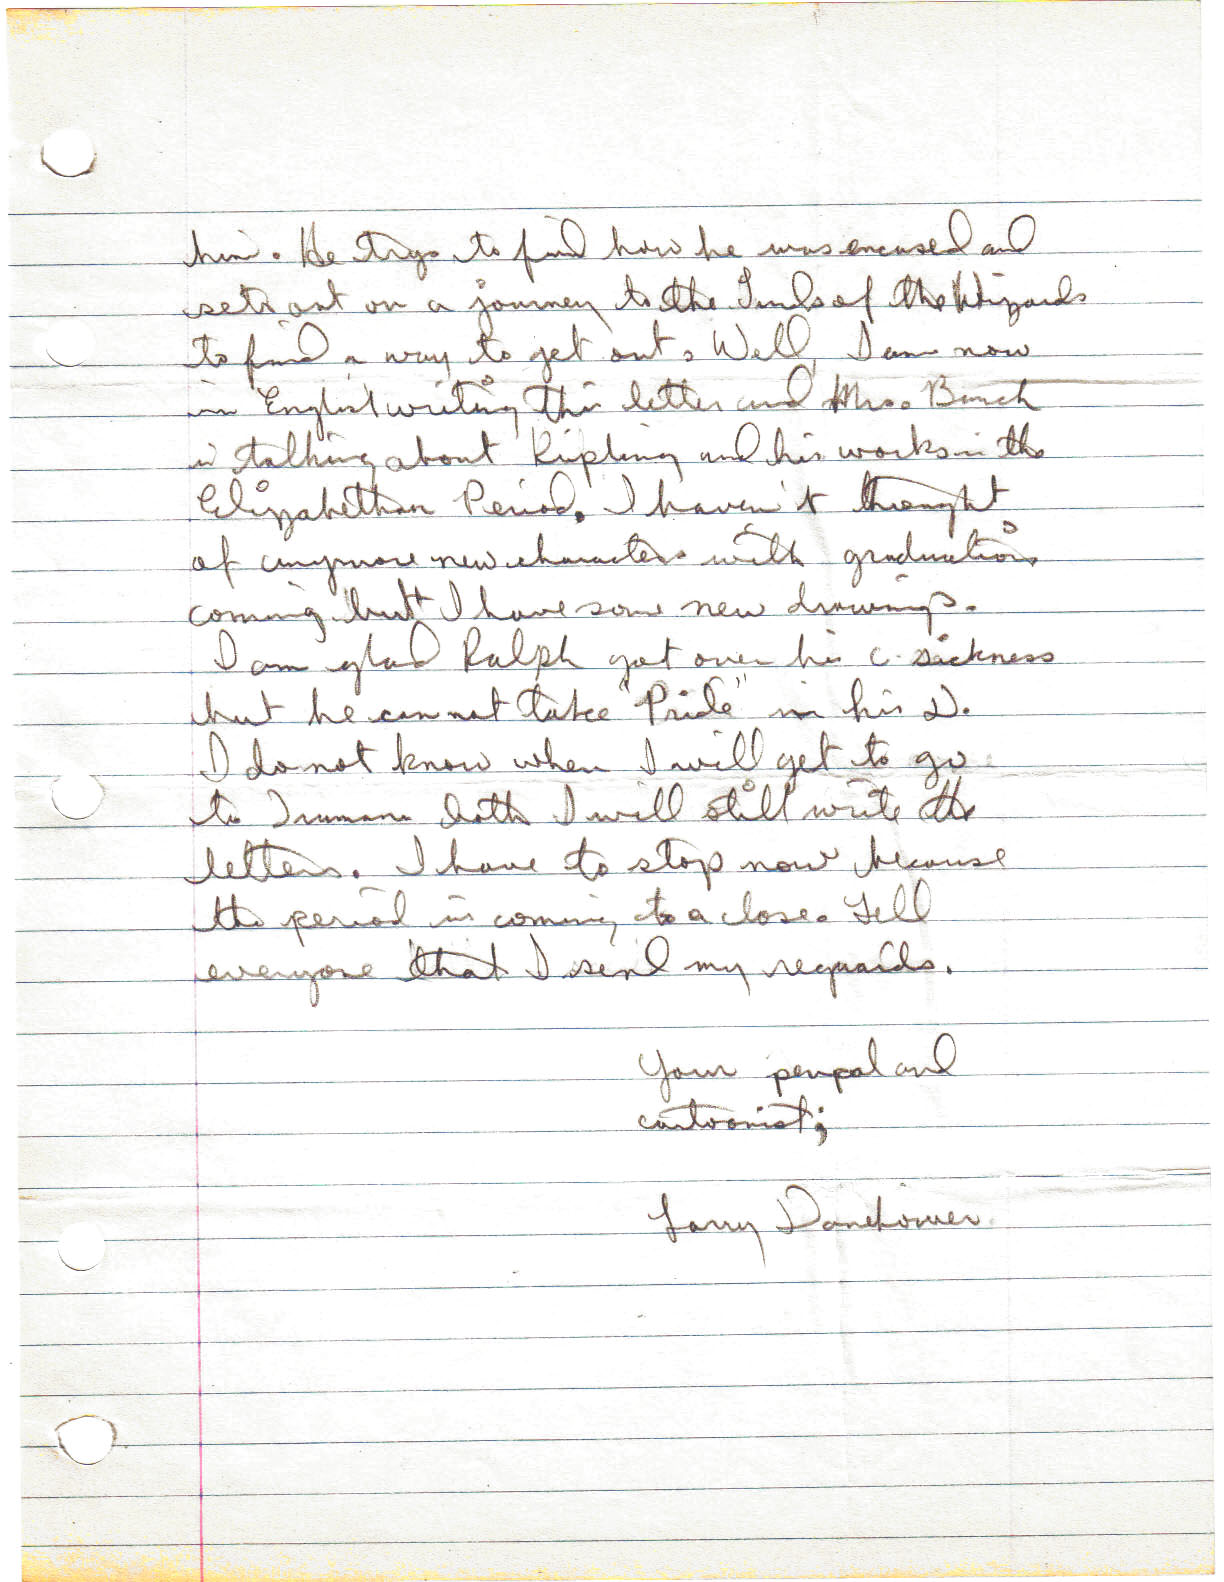 him. He trys to find how he was encased and
sets out on a journey to the Lands of the Wizards
to find a way to get out. Well, I am now
in English writing this letter and Mrs. Bunch
is talking about Kipling and his works in the
Elizabethan Period. I haven't thought
of anymore new characters with graduation
coming but I have some new drawings.
I am glad Ralph got over his c. sickness
but he can not take "Pride" in his D.
I do not know when I will get to go
to Trumann I will still write the
letters. I have to stop now because
the period is coming to a close. Tell
everyone that I send my regards.
Your penpal and
cartoonist;
Larry Danehower